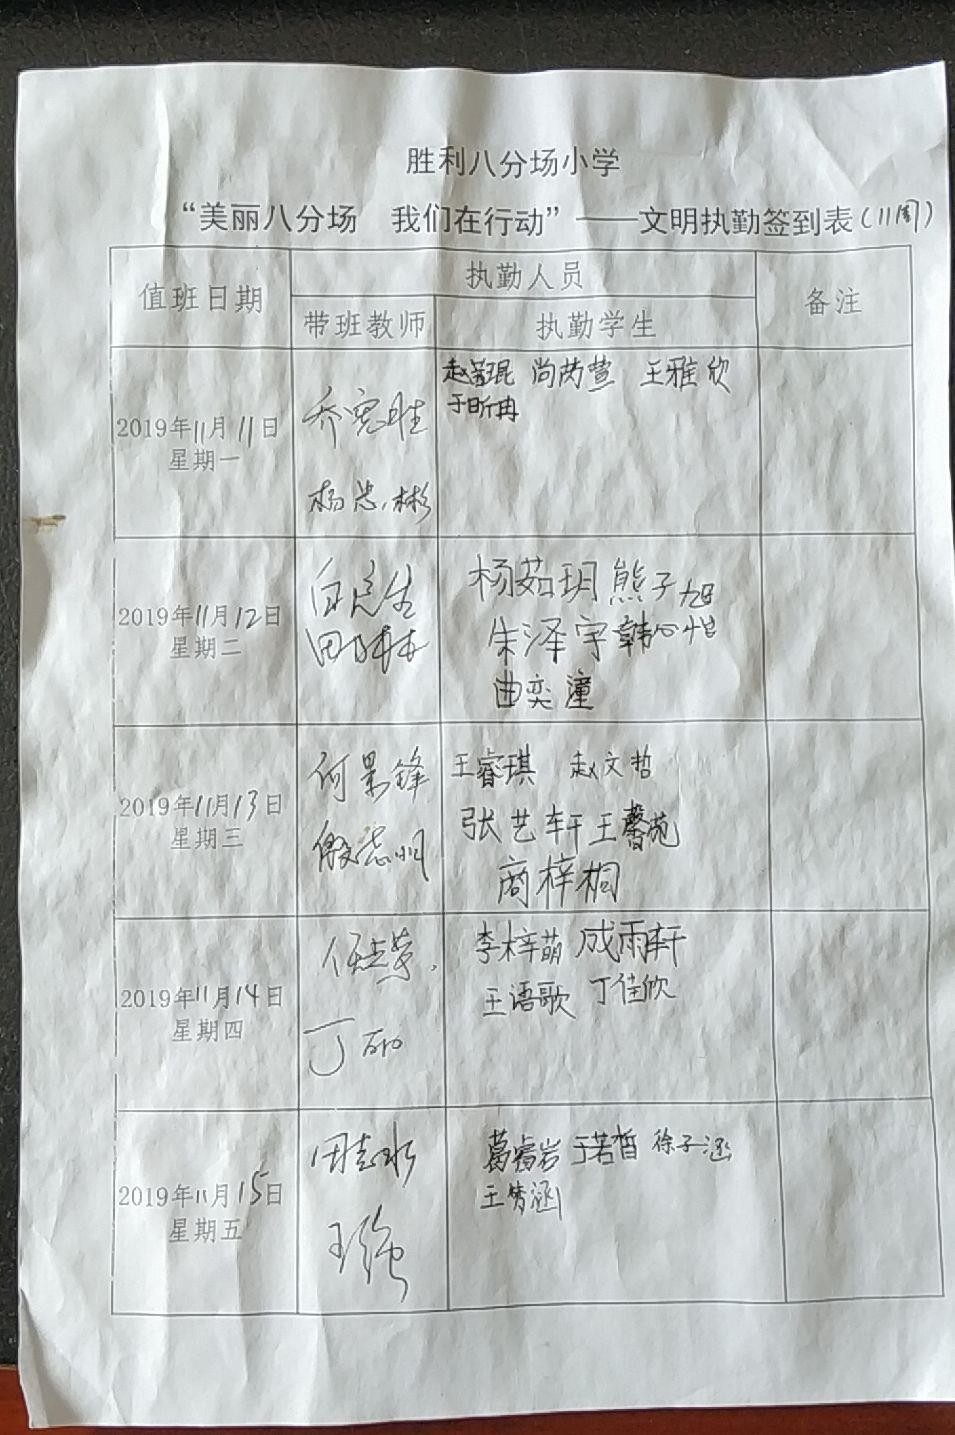 胜利八分场小学
“美丽八分场　我们在行动”——文明执勤签到表(11周)
值班日期
执勤人员
备注
带班教师
执勤学生
2019年11月11日
星期一
乔宪胜
杨忠彬
赵 琨 尚芮萱 王雅欣
于昕冉
2019年11月12日
星期二
田
杨茹玥 熊子旭
朱泽宇 韩心怡
曲奕潼
2019年11月13日
星期三
何景锋
殷志明
王睿琪 赵文哲
张艺轩 王馨苑
商梓桐
2019年11月14日
星期四
任志莩
丁
李梓萌 成雨轩
王语歌 丁佳欣
2019年11月15日
星期五
田志水
王强
葛睿岩 于若皙 徐子涵
王梦涵